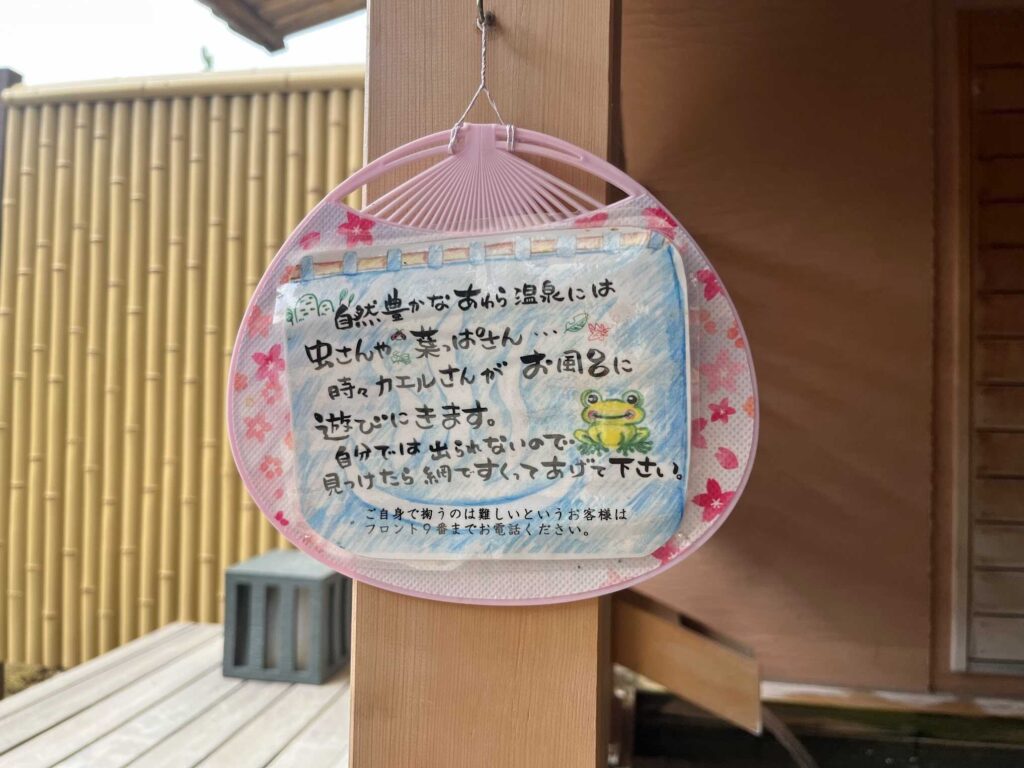 自然豊かなあわら温泉には
虫さんや葉っぱさん…
時々カエルさんがお風呂に
遊びにきます。
自分では出られないので…
見つけたら網ですくってあげて下さい。
ご自身で掬うのは難しいというお客様は
フロント9番までお電話ください。